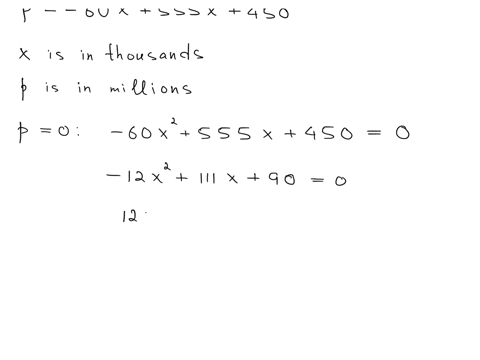 p = -60x² + 555x + 450
x is in thousands
p is in millions
p = 0: -60x² + 555x + 450 = 0
-12x² + 111x + 90 = 0
12